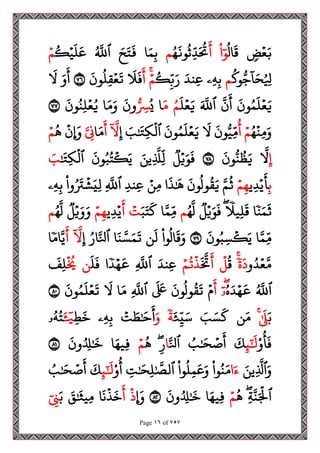 بَعۡضٖ قَالُوٓاْ أَتُحَدِّثُونَهُم بِمَا فَتَحَ ٱللَّهُ عَلَيۡكُمۡ
لِيُحَآجُّوكُم بِهِۦ عِندَ رَبِّكُمۡۚ أَفَلَا تَعۡقِلُونَ ٧٦ أَوَلَا
يَعۡلَمُونَ أَنَّ ٱللَّهَ يَعۡلَمُ مَا يُسِرُّونَ وَمَا يُعۡلِنُونَ ٧٧
وَمِنۡهُمۡ أُمِّيُّونَ لَا يَعۡلَمُونَ ٱلۡكِتَٰبَ إِلَّآ أَمَانِيَّ وَإِنۡ هُمۡ
إِلَّا يَظُنُّونَ ٧٨ فَوَيۡلٞ لِّلَّذِينَ يَكۡتُبُونَ ٱلۡكِتَٰبَ
بِأَيۡدِيهِمۡ ثُمَّ يَقُولُونَ هَٰذَا مِنۡ عِندِ ٱللَّهِ لِيَشۡتَرُواْ بِهِۦ
ثَمَنٗا قَلِيلٗاۖ فَوَيۡلٞ لَّهُم مِّمَّا كَتَبَتۡ أَيۡدِيهِمۡ وَوَيۡلٞ لَّهُم
مِّمَّا يَكۡسِبُونَ ٧٩ وَقَالُواْ لَن تَمَسَّنَا ٱلنَّارُ إِلَّآ أَيَّامٗا
مَّعۡدُودَةٗۚ قُلۡ أَتَّخَذۡتُمۡ عِندَ ٱللَّهِ عَهۡدٗا فَلَن يُخۡلِفَ
ٱللَّهُ عَهۡدَهُۥٓۖ أَمۡ تَقُولُونَ عَلَى ٱللَّهِ مَا لَا تَعۡلَمُونَ ٨٠
بَلَىٰۚ مَن كَسَبَ سَيِّئَةٗ وَأَحَٰطَتۡ بِهِۦ خَطِيٓـَٔتُهُۥ
فَأُوْلَٰٓئِكَ أَصۡحَٰبُ ٱلنَّارِۖ هُمۡ فِيهَا خَٰلِدُونَ ٨١
وَٱلَّذِينَ ءَامَنُواْ وَعَمِلُواْ ٱلصَّٰلِحَٰتِ أُوْلَٰٓئِكَ أَصۡحَٰبُ
ٱلۡجَنَّةِۖ هُمۡ فِيهَا خَٰلِدُونَ ٨٢ وَإِذۡ أَخَذۡنَا مِيثَٰقَ بَنِيٓ
Page ١٦ of ٧٥٧